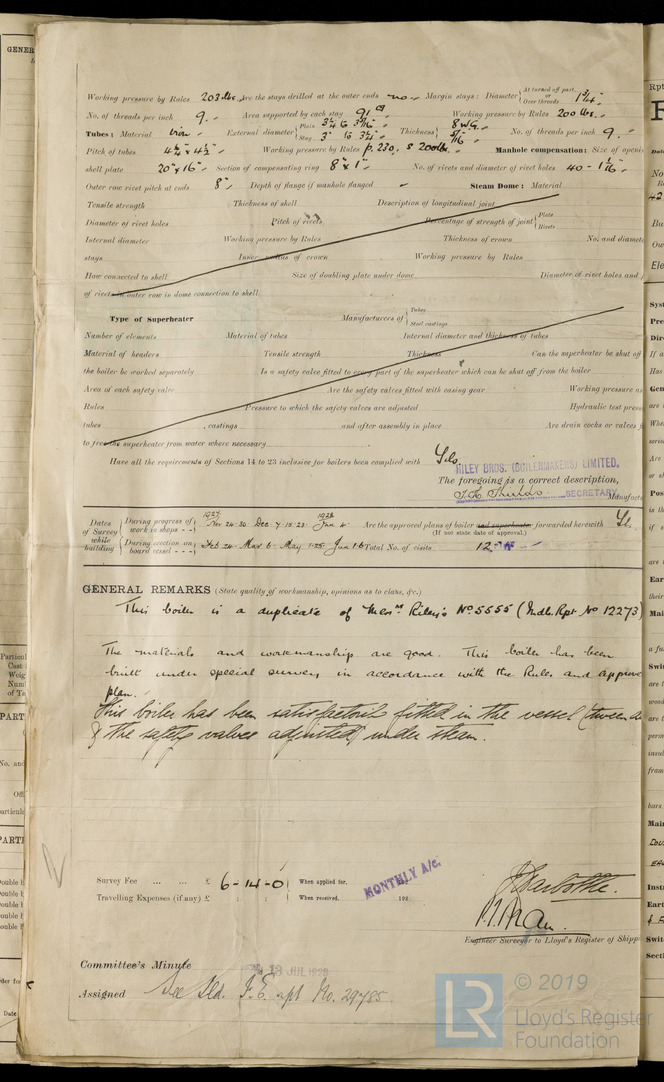 Working pressure by Rules 203 lbs. Are the stays drilled at the outer ends no Margin stays: Diameter { At turned off part, or Over threads 1 3/4"
No. of threads per inch 9. Area supported by each stay Working pressure by Rules 200 lbs.
Tubes: Material Iron External diameter { Plain 3 1/4" & Stay 3" & 3 1/4" Thickness { 8 W.G. 5/16" No. of threads per inch 9.
Pitch of tubes 4 1/4" x 4 1/2" Working pressure by Rules p. 230. s 200 lbs. Manhole compensation: Size of openi
shell plate 20" x 16" Section of compensating ring 8" x 1" No. of rivets and diameter of rivet holes 40 - 1 1/16"
Outer row rivet pitch at ends 8" Depth of flange if manhole flanged Steam Dome: Material
Tensile strength Thickness of shell Description of longitudinal joint
Diameter of rivet holes Pitch of rivets Percentage of strength of joint { Plate Rivets
Internal diameter Working pressure by Rules Thickness of crown No. and diamete
stays Inner radius of crown Working pressure by Rules
How connected to shell Size of doubling plate under dome Diameter of rivet holes and
of rivets in outer row in dome connection to shell
Type of Superheater Manufacturers of { Tubes Steel castings
Number of elements Material of tubes Internal diameter and thickness of tubes
Material of headers Tensile strength Thickness Can the superheater be shut off
the boiler be worked separately Is a safety valve fitted to every part of the superheater which can be shut off from the boiler
Area of each safety valve Are the safety valves fitted with easing gear Working pressure as
Rules Pressure to which the safety valves are adjusted Hydraulic test press
tubes , castings and after assembly in place Are drain cocks or valves f
to free the superheater from water where necessary
Have all the requirements of Sections 14 to 23 inclusive for boilers been complied with Yes
RILEY BROS. (BOILERMAKERS) LIMITED,
The foregoing is a correct description,
SECRETARY Manufact
Dates of Survey while building { During progress of work in shops - - 1927 Nov 24. 30. Dec. 7. 15. 23. 1928 Jan 4. Are the approved plans of boiler and superheater forwarded herewith Yes
(If not state date of approval.)
During erection on board vessel - - - Feb 24 Mar 6 May 1. 25 Jun 1. 6 Total No. of visits 12
GENERAL REMARKS (State quality of workmanship, opinions as to class, &c.)
This boiler is a duplicate of Messrs Riley's No 5555 (Mdb. Rpt No 12273)
The materials and workmanship are good. This boiler has been
built under special survey in accordance with the Rules and approve
plan.
This boiler has been satisfactorily fitted in the vessel (tween de
& the safety valves adjusted under steam.
Survey Fee ... ... £ 6-14-0 When applied for,
MONTHLY A/c. 192
Travelling Expenses (if any) £ : : When received,
Engineer Surveyor to Lloyd's Register of Shipp
Committee's Minute 13 JUL 1928
Assigned See Sld. F.E. rpt No. 29785
© 2019
LR Lloyd's Register
Foundation